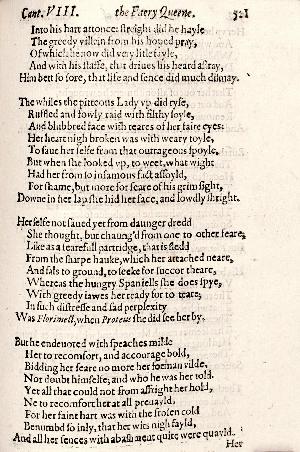 Cant. VIII. the Faery Queene. 521
Into his hart attonce: streight did he hayle
The greedy villein from his hoped pray,
Of which he now did very litle fayle,
And with his staffe, that driues his heard astray,
Him bett so sore, that life and sence did much dismay.
The whiles the pitteous Lady vp did ryse,
Ruffled and fowly raid with filthy soyle,
And blubbred face with teares of her faire eyes:
Her heart nigh broken was with weary toyle,
To saue her selfe from that outrageous spoyle,
But when she looked vp, to weet, what wight
Had her from so infamous fact assoyld,
For shame, but more for feare of his grim sight,
Downe in her lap she hid her face, and lowdly shright.
Her selfe not saued yet from daunger dredd
She thought, but chaung'd from one to other feare;
Like as a fearefull partridge, that is fledd
From the sharpe hauke, which her attached neare,
And fals to ground, to seeke for succor theare,
Whereas the hungry Spaniells she does spye,
With greedy iawes her ready for to teare;
In such distresse and sad perplexity
Was Florimell, when Proteus she did see her by.
But he endeuored with speaches milde
Her to recomfort, and accourage bold,
Bidding her feare no more her foeman vilde,
Nor doubt himselfe; and who he was her told.
Yet all that could not from affright her hold,
Ne to recomfort her at all preuayld,
For her faint hart was with the frosen cold
Benumbd so inly, that her wits nigh fayld,
And all her sences with abashment quite were quayld.
Her